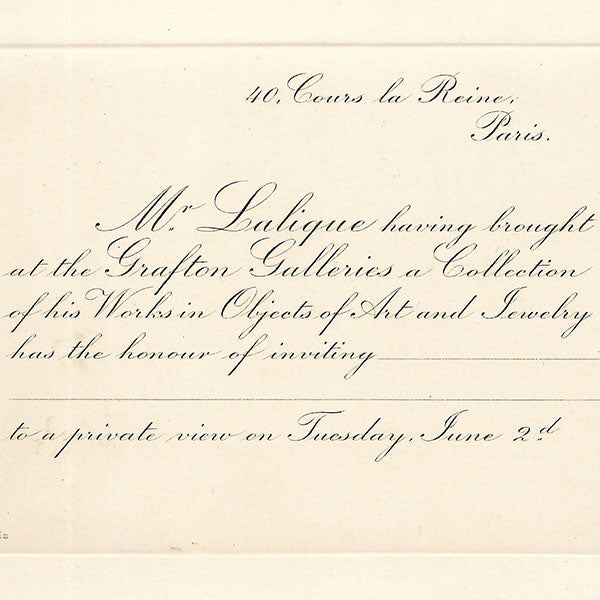 40, Cours la Reine,
Paris.
Mr. Lalique having brought
at the Grafton Galleries a Collection
of his Works in Objects of Art and Jewelry
has the honour of inviting
to a private view on Tuesday, June 2d